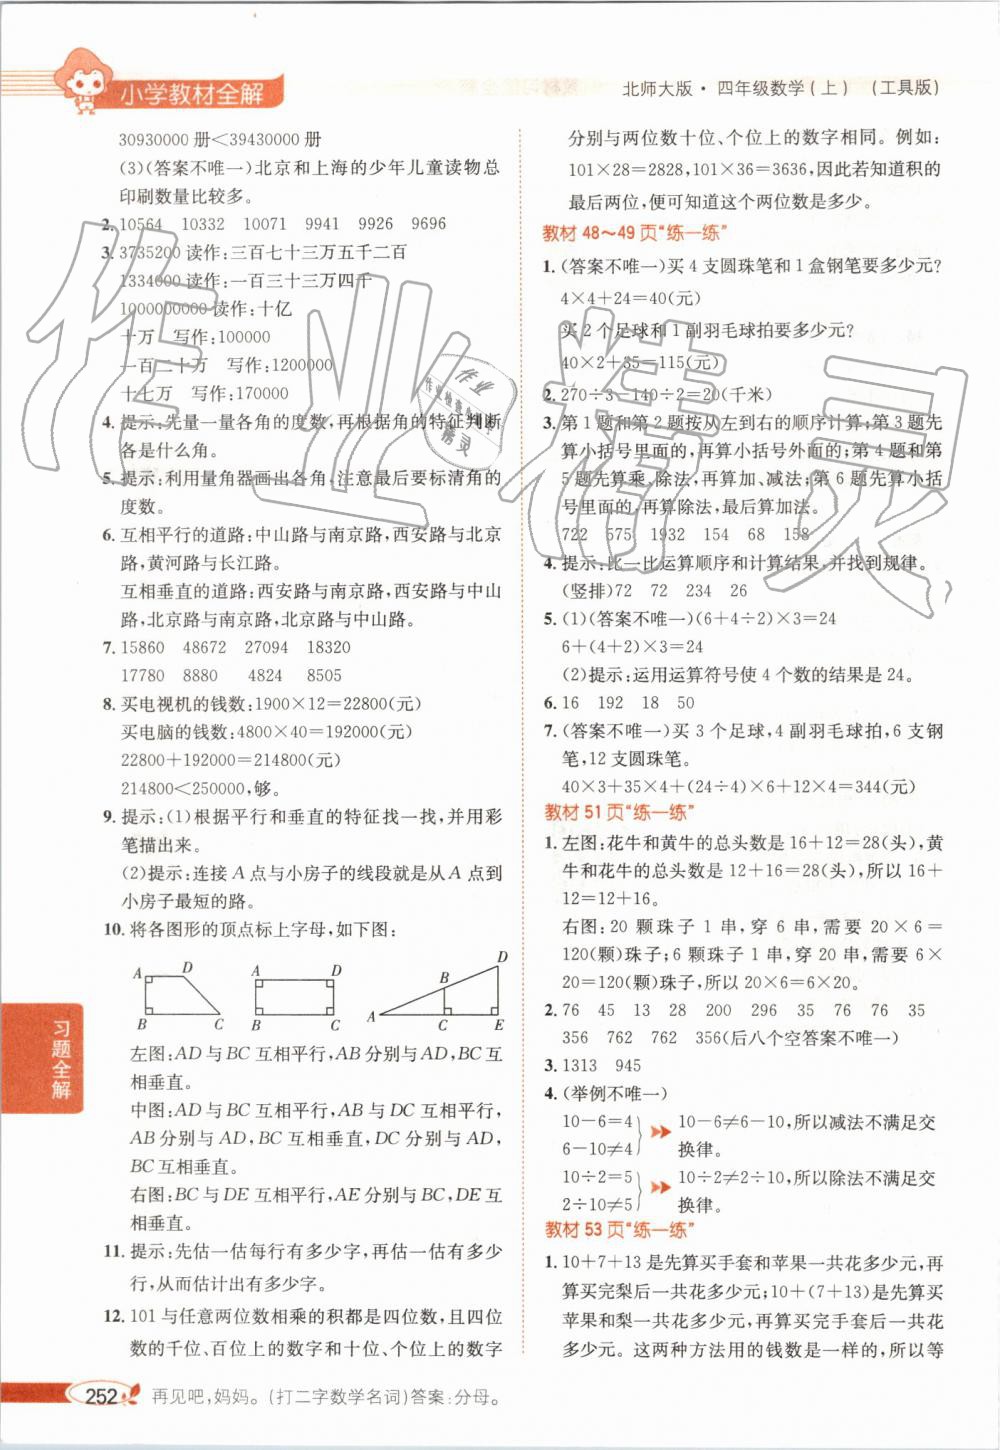 小学教材全解
北师大版·四年级数学(上) (工具版)
30930000 册＜39430000 册
(3)(答案不唯一)北京和上海的少年儿童读物总
印刷数量比较多。
2. 10564 10332 10071 9941 9926 9696
3. 3735200 读作:三百七十三万五千二百
1334000 读作:一百三十三万四千
1000000000 读作:十亿
十万 写作:100000
一百二十万 写作:1200000
十七万 写作:170000
4. 提示:先量一量各角的度数,再根据角的特征判断
各是什么角。
5. 提示:利用量角器画出各角,注意最后要标清角的
度数。
6. 互相平行的道路:中山路与南京路,西安路与北京
路,黄河路与长江路。
互相垂直的道路:西安路与南京路,西安路与中山
路,北京路与南京路,北京路与中山路。
7. 15860 48672 27094 18320
17780 8880 4824 8505
8. 买电视机的钱数:1900×12=22800(元)
买电脑的钱数:4800×40=192000(元)
22800+192000=214800(元)
214800<250000,够。
9. 提示:(1)根据平行和垂直的特征找一找,并用彩
笔描出来。
(2)提示:连接 A 点与小房子的线段就是从 A 点到
小房子最短的路。
10. 将各图形的顶点标上字母,如下图:
A D B C
A D B C
A B C D E
左图:AD 与 BC 互相平行,AB 分别与 AD,BC 互
相垂直。
中图:AD 与 BC 互相平行,AB 与 DC 互相平行,
AB 分别与 AD,BC 互相垂直,DC 分别与 AD,
BC 互相垂直。
右图:BC 与 DE 互相平行,AE 分别与 BC,DE 互
相垂直。
11. 提示:先估一估每行有多少字,再估一估有多少
行,从而估计出有多少字。
12. 101 与任意两位数相乘的积都是四位数,且四位
数的千位、百位上的数字和十位、个位上的数字
分别与两位数十位、个位上的数字相同。例如:
101×28=2828,101×36=3636,因此若知道积的
最后两位,便可知道这个两位数是多少。
教材 48～49 页“练一练”
1. (答案不唯一)买 4 支圆珠笔和 1 盒钢笔要多少元?
4×4+24=40(元)
买 2 个足球和 1 副羽毛球拍要多少元?
40×2+35=115(元)
2. 270÷3-140÷2=20(千米)
3. 第 1 题和第 2 题按从左到右的顺序计算;第 3 题先
算小括号里面的,再算小括号外面的;第 4 题和第
5 题先算乘、除法,再算加、减法;第 6 题先算小括
号里面的,再算除法,最后算加法。
722 575 1932 154 68 158
4. 提示:比一比运算顺序和计算结果,并找到规律。
(竖排)72 72 234 26
5. (1)(答案不唯一)(6+4÷2)×3=24
6+(4+2)×3=24
(2)提示:运用运算符号使 4 个数的结果是 24。
6. 16 192 18 50
7. (答案不唯一)买 3 个足球,4 副羽毛球拍,6 支钢
笔,12 支圆珠笔。
40×3+35×4+(24÷4)×6+12×4=344(元)
教材 51 页“练一练”
1. 左图:花牛和黄牛的总头数是 16+12=28(头),黄
牛和花牛的总头数是 12+16=28(头),所以 16+
12=12+16。
右图:20 颗珠子 1 串,穿 6 串,需要 20×6=
120(颗)珠子;6 颗珠子 1 串,穿 20 串,需要 6×20=
120(颗)珠子,所以 20×6=6×20。
2. 76 45 13 28 200 296 35 76 76 35
356 762 762 356(后八个空答案不唯一)
3. 1313 945
4. (举例不唯一)
10-6=4 10-6≠6-10,所以减法不满足交
6-10≠4 换律。
10÷2=5 10÷2≠2÷10,所以除法不满足交
2÷10≠5 换律。
教材 53 页“练一练”
1. 10+7+13 是先算买手套和苹果一共花多少元,再
算买完梨后一共花多少元;10+(7+13)是先算买
苹果和梨一共花多少元,再算买完手套后一共要
花多少元。这两种方法用的钱数是一样的,所以等
习题全解
252 再见吧,妈妈。(打二字数学名词)答案:分母。
作业精灵
作业
精灵